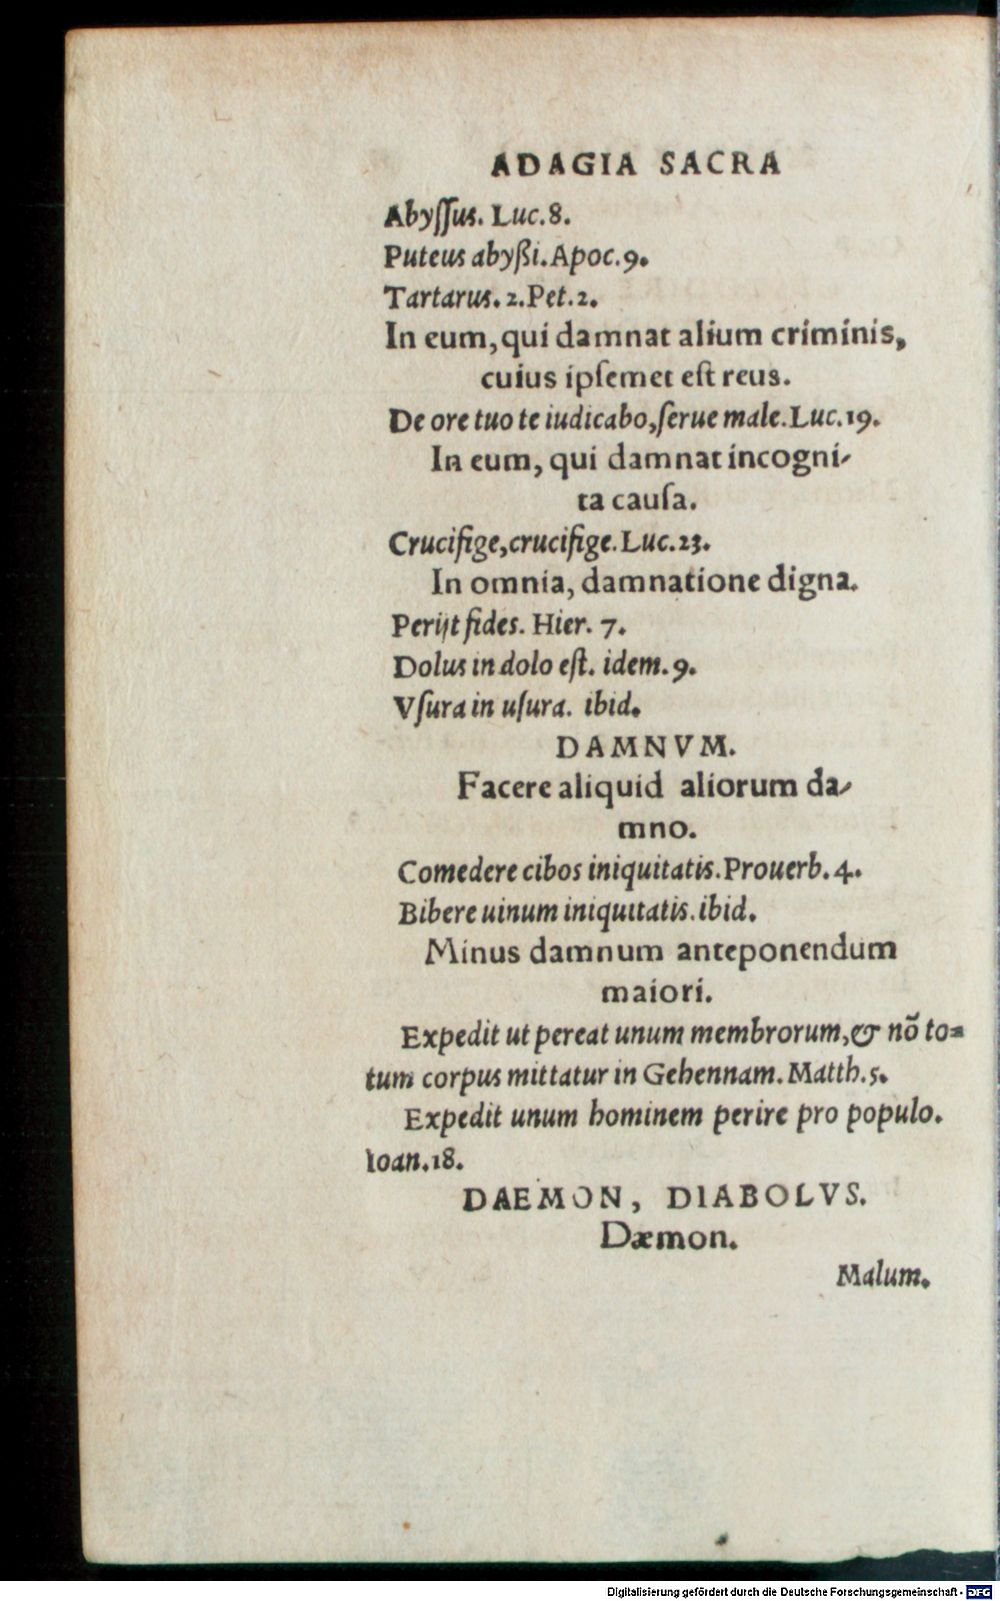 ADAGIA SACRA
Abyſſus. Luc.8.
Puteus abyßi. Apoc.9.
Tartarus. 2.Pet.2.
In eum, qui damnat alium criminis,
cuius ipſemet eſt reus.
De ore tuo te iudicabo, ſerue male. Luc.19.
In eum, qui damnat incogni-
ta cauſa.
Crucifige, crucifige. Luc.23.
In omnia, damnatione digna.
Perijt fides. Hier. 7.
Dolus in dolo eſt. idem. 9.
Vſura in uſura. ibid.
DAMNVM.
Facere aliquid aliorum da-
mno.
Comedere cibos iniquitatis. Prouerb. 4.
Bibere uinum iniquitatis. ibid.
Minus damnum anteponendum
maiori.
Expedit ut pereat unum membrorum, & nõ to=
tum corpus mittatur in Gehennam. Matth.5.
Expedit unum hominem perire pro populo.
Ioan.18.
DAEMON, DIABOLVS.
Dæmon.
Malum.
Digitalisierung gefördert durch die Deutsche Forschungsgemeinschaft - DFG